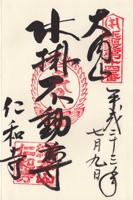 大内山
平成二十三年
七月九日
水掛不動尊
仁和寺